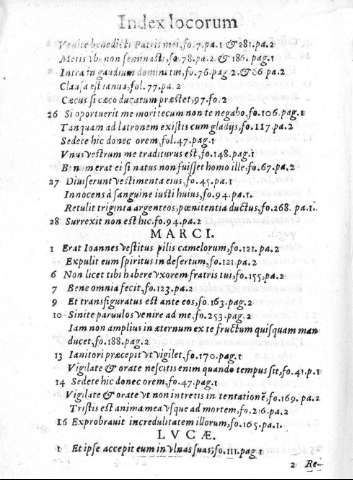 Index locorum
Venite benedicti Patris mei, fo.7.pa.1 & 281.pa.2
Metis vbi non seminasti, fo.78.pa.2. & 186. pag.1
Intra in gaudium domini tui, fo.76. pag 2. & 86 pa.2
Clausa est ianua, fol. 77. pa.2
Cæcus si cæco ducatum præstet, 97. fo.2
26 Si oportuerit me mori tecum non te negabo. fo.106. pag.1
Tanquam ad latronem existis cum gladijs, fo.117. pa.2
Sedete hic donec orem, fol. 47. pag.1
Vnus vestrum me traditurus est, fo.148. pag.1
Bonum erat ei si natus non fuisset homo ille. fo.67. pa.2
27 Diuiserunt vestimenta eius, fo.45. pa.1
Innocens à sanguine iusti huius, fo.94. pa.1.
Retulit triginta argenteos, pœnitentia ductus, fo.268. pa.1.
28 Surrexit non est hic. fo.94. pa.2
MARCI.
1 Erat Ioannes vestitus pilis camelorum, fo.121. pa.2
Expulit eum spiritus in desertum, fo.121. pa.2
6 Non licet tibi habere vxorem fratris tui, fo.155. pa.2
7 Bene omnia fecit, fo.123. pa.2
9 Et transfiguratus est ante eos, fo.163. pag.2
10 Sinite paruulos venire ad me. fo.253. pag.2
Iam non amplius in æternum ex te fructum quisquam man
ducet, fo.188. pag.2
13 Ianitori præcepit vt vigilet, fo.170. pag.1
Vigilate & orate nescitis enim quando tempus sit, fo.41. p.1
14 Sedete hic donec orem, fo.47. pag.1
Vigilate & orate vt non intretis in tentationē, fo.169. pa.2
Tristis est anima mea vsque ad mortem, fo.216. pa.2
16 Exprobrauit incredulitatem illorum, fo.165. pa.1.
LVCÆ.
1 Et ipse accepit eum in vlnas suas, fo.111. pag.1
2 Re-